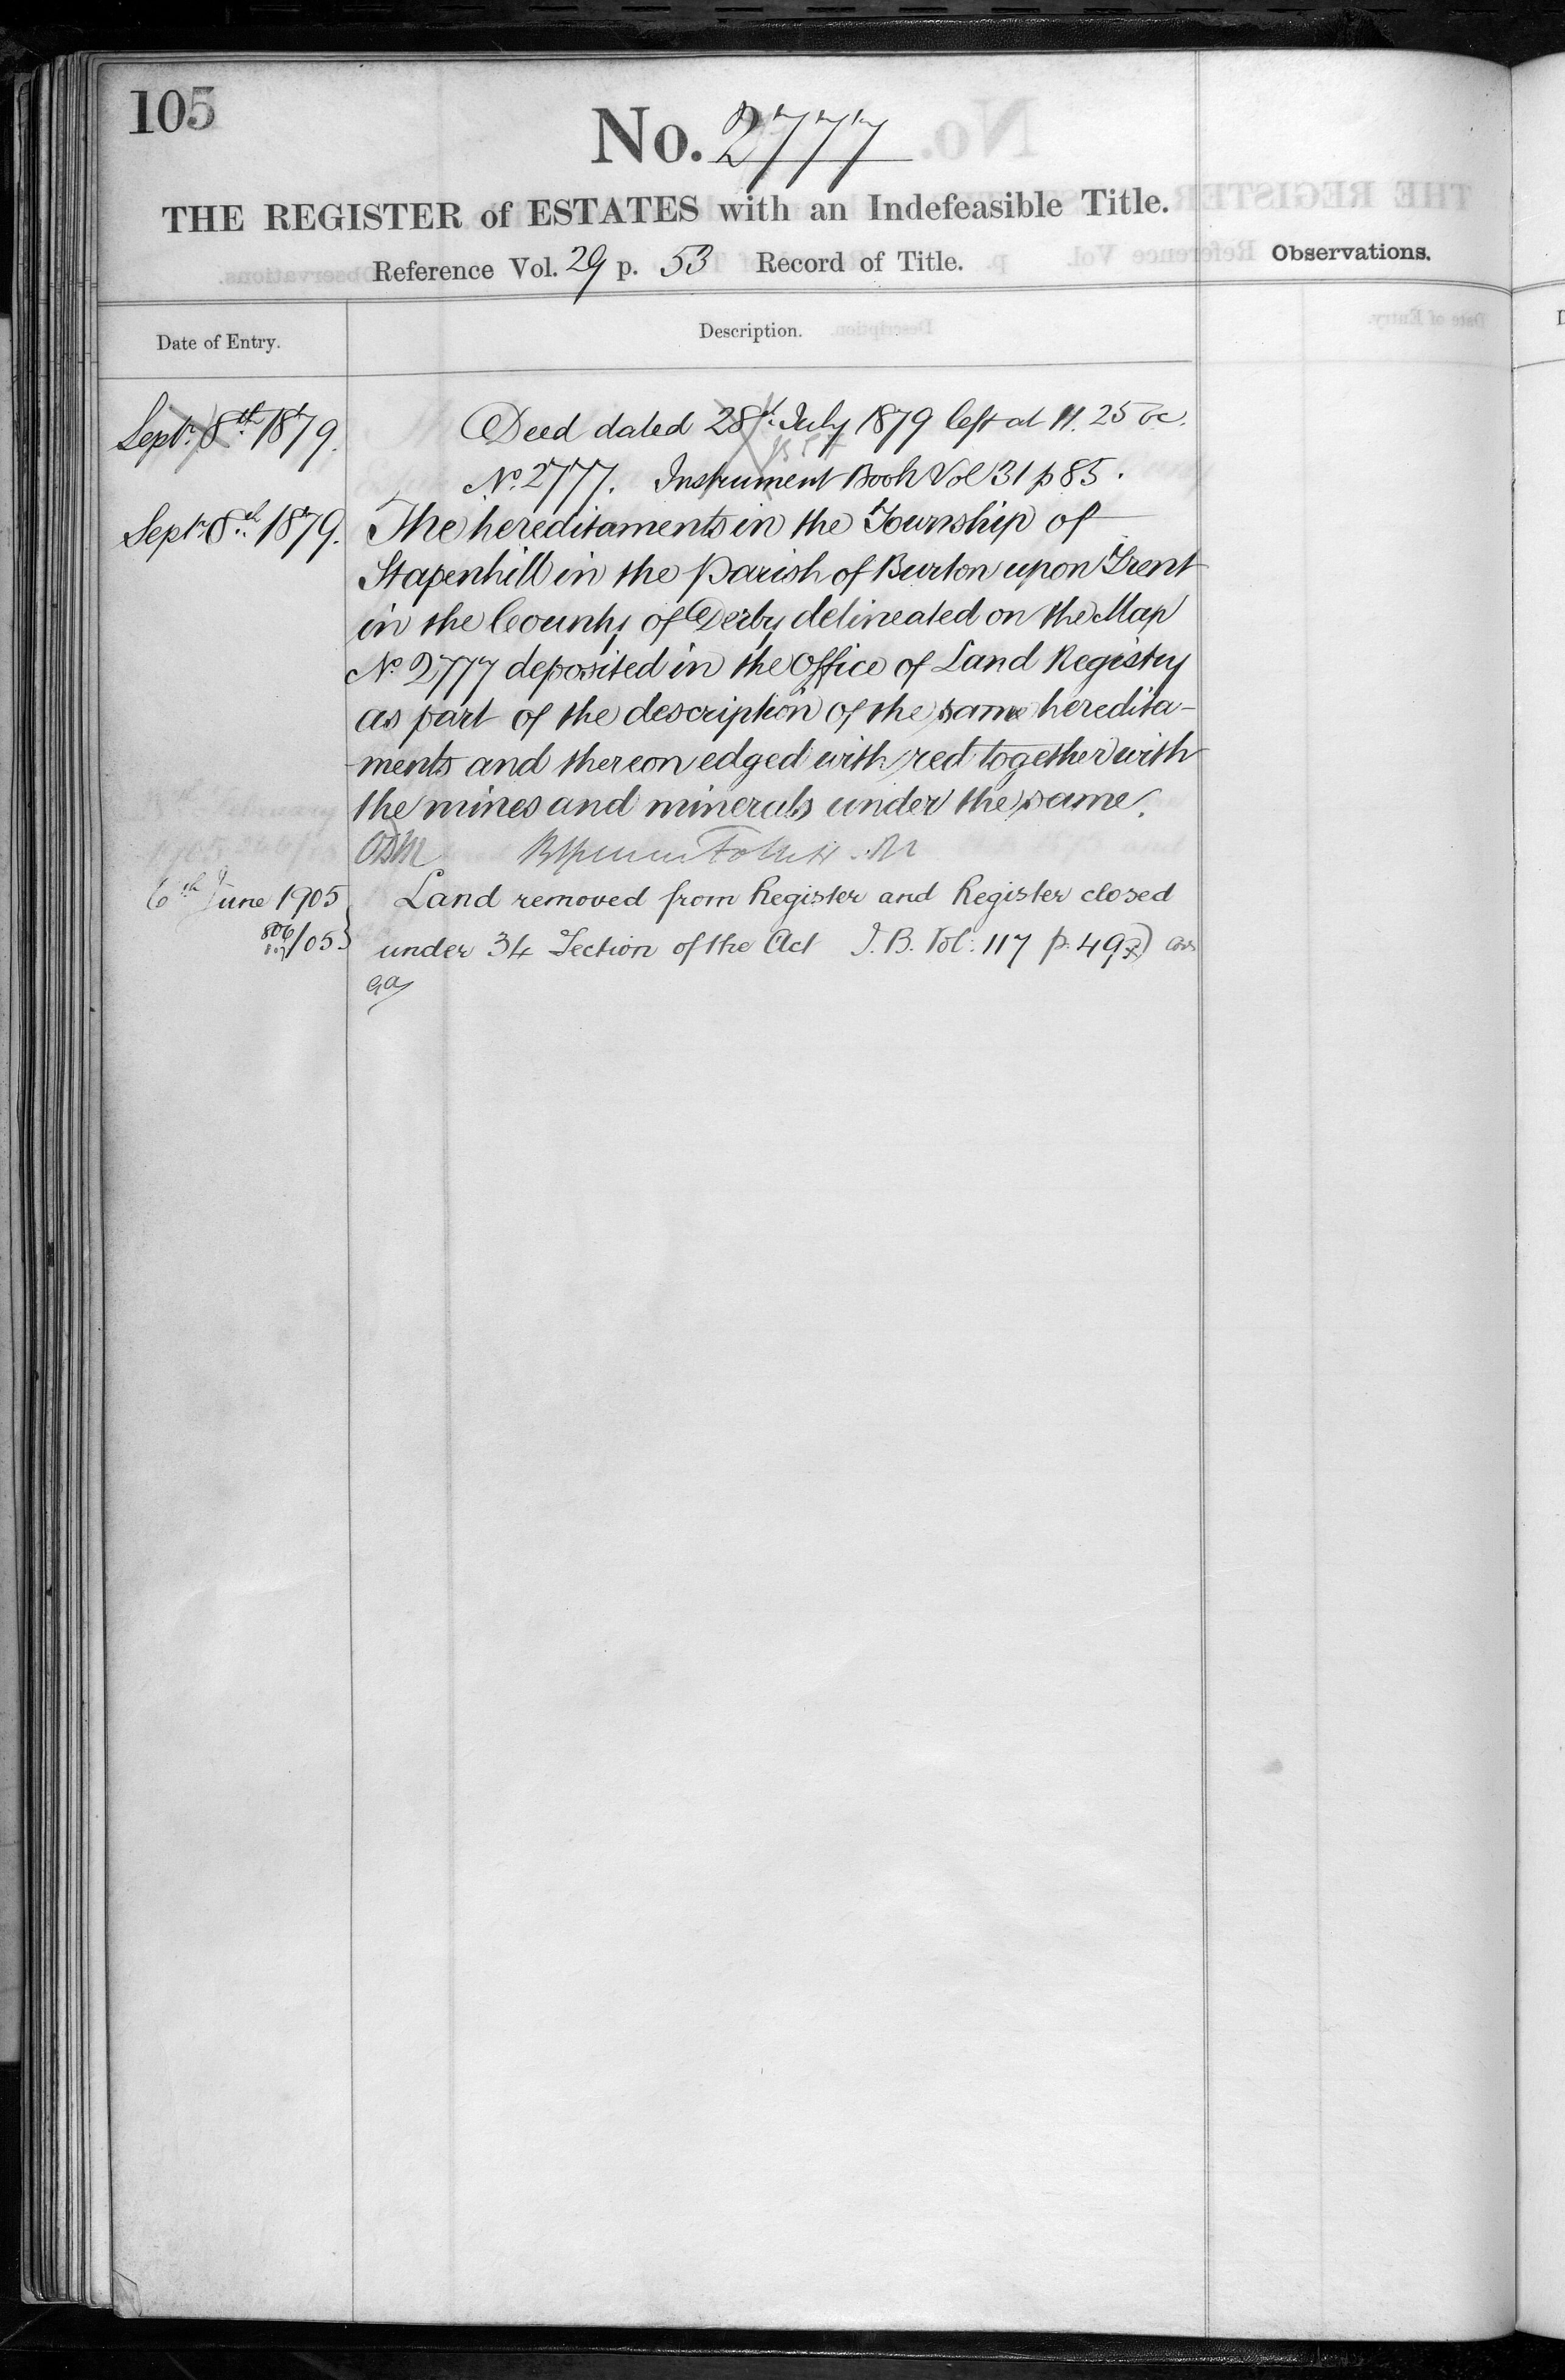 105
No. 2777
THE REGISTER of ESTATES with an Indefeasible Title.
Reference Vol. 29 p. 53 Record of Title.
Observations.
Date of Entry.
Description.
Septr. 8th 1879. Deed dated 28 July 1879 left at 11.25 &c.
No. 2777. Instrument Book Vol 31 p 85.
Septr. 8th 1879. The hereditaments in the Township of
Stapenhill in the Parish of Burton upon Trent
in the County of Derby delineated on the Map
No. 2777 deposited in the Office of Land Registry
as part of the description of the same heredita-
ments and thereon edged with red together with
the mines and minerals under the same.
6th June 1905 Land removed from Register and Register closed
806/05 under 34 Section of the Act I.B. Vol: 117 p. 49